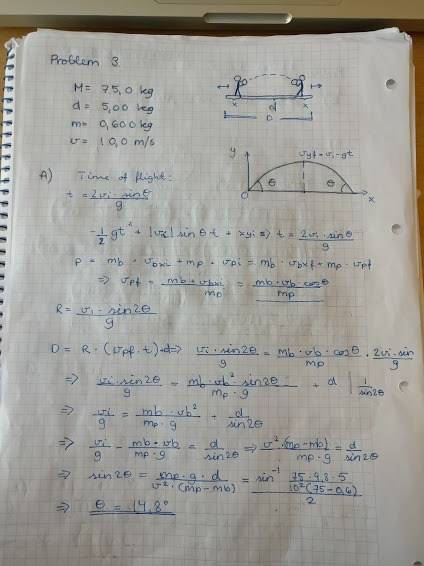 Problem 3
M = 75,0 kg
d = 5,00 kg
m = 0,600 kg
v = 10,0 m/s
x d x
D
y vyf = vi - gt
θ θ
0 x
A) Time of flight:
t = 2vi · sinθ / g
-1/2 gt² + |vx| sin θ · t + xyi => t = 2vi · sinθ / g
P = mb · vbxi + mp + vpi = mb · vbxf + mp · vpf
=> vpf = mb + vbxi / mp = mb · vb cosθ / mp
R = vi · sin2θ / g
D = R · (vpf · t) + d => vi · sin2θ / g = mb · vb · cosθ / mp · 2vi · sin / g
=> vi · sin2θ / g = mb · vb² · sin2θ / mp · g + d | 1 / sin2θ
=> vi / g = mb · vb² / mp · g + d / sin2θ
=> vi / g - mb · vb / mp · g = d / sin2θ => v² · (mp - mb) / mp · g = d / sin2θ
=> sin2θ = mp · g · d / v² · (mp - mb) = sin⁻¹ 75 · 9,8 · 5 / 10² (75 - 0,6) / 2
=> θ = 14,8°